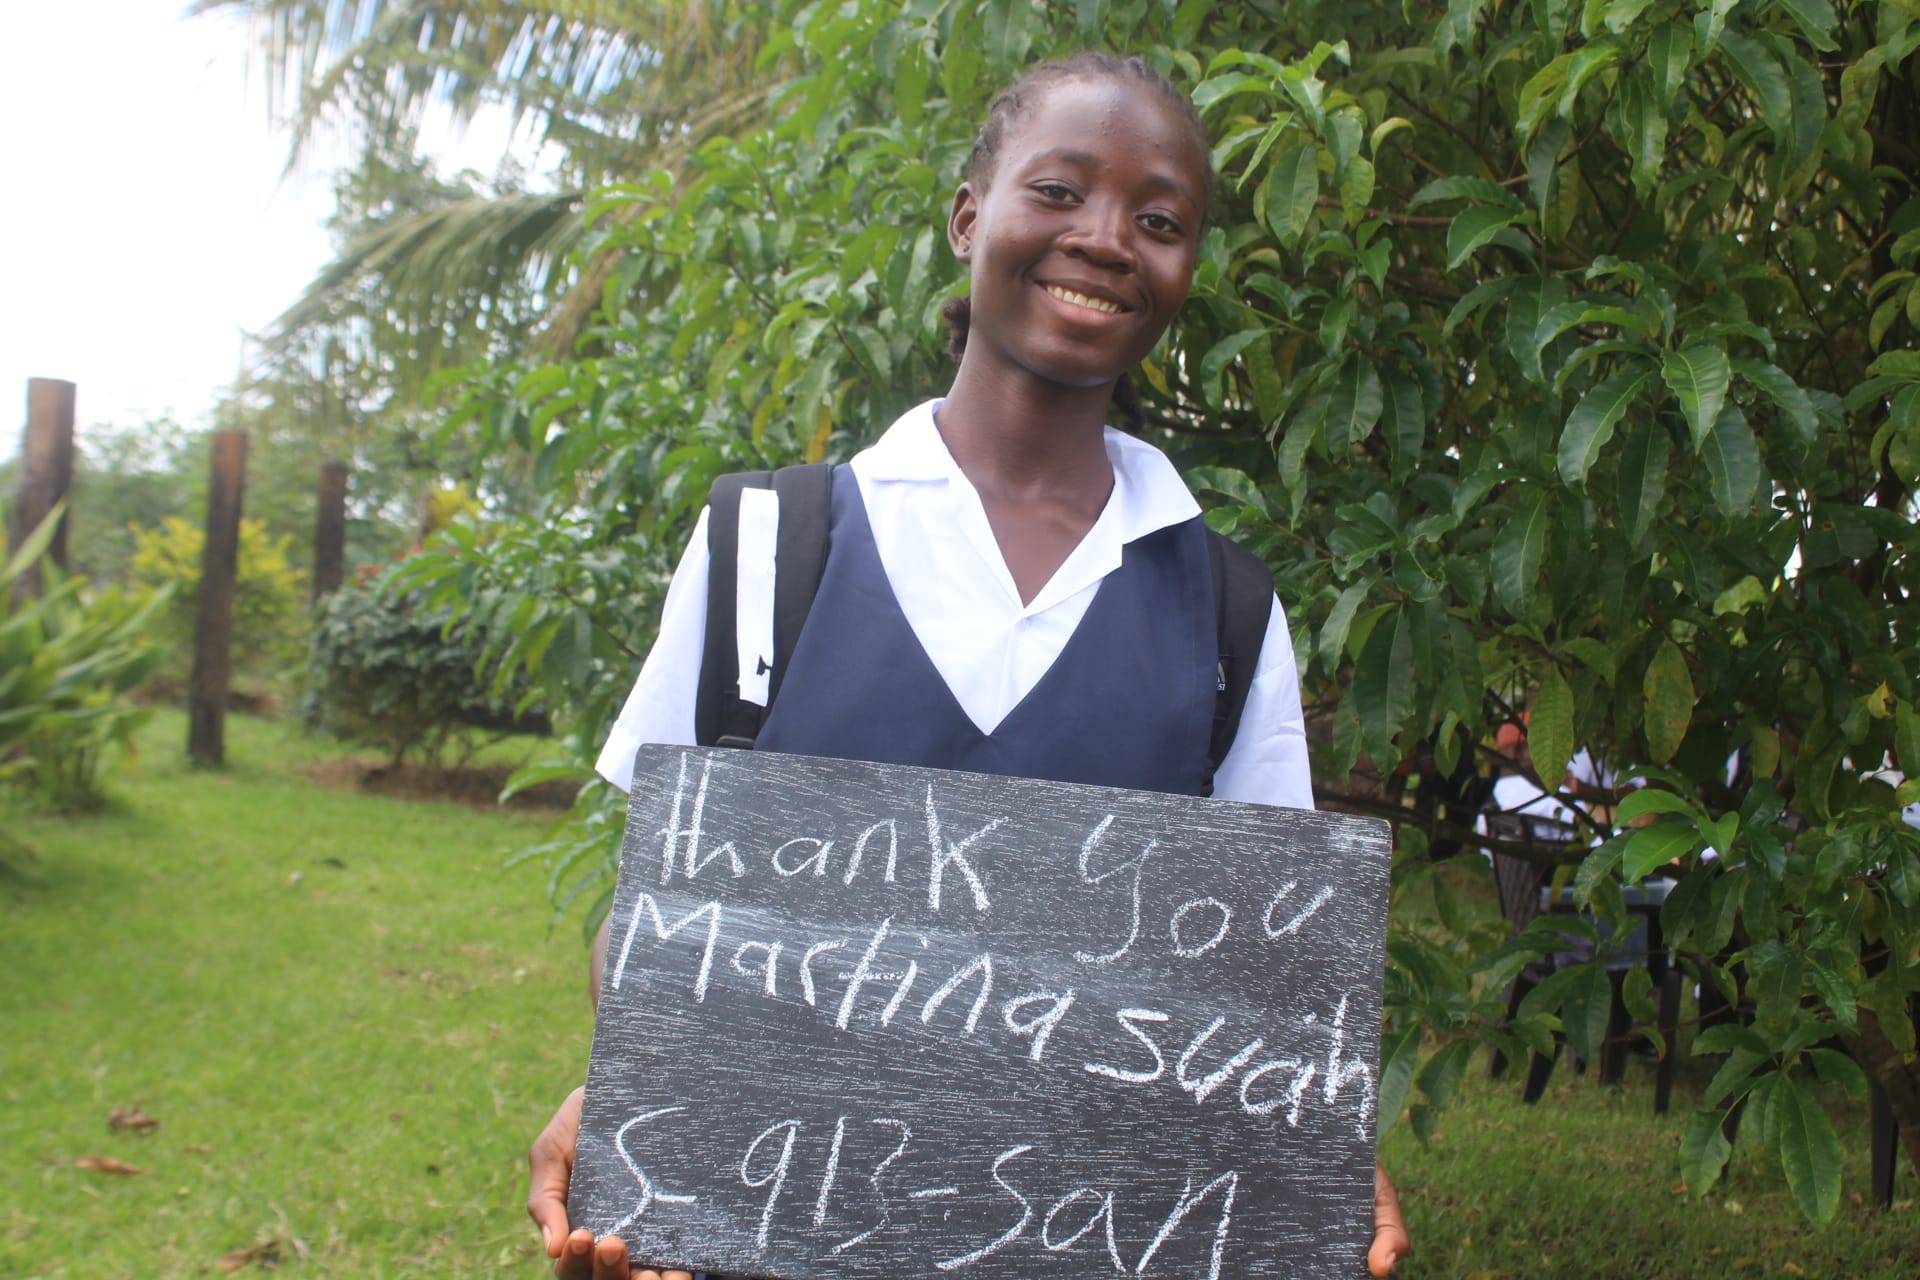 Thank you
Martina suah
S-913-San